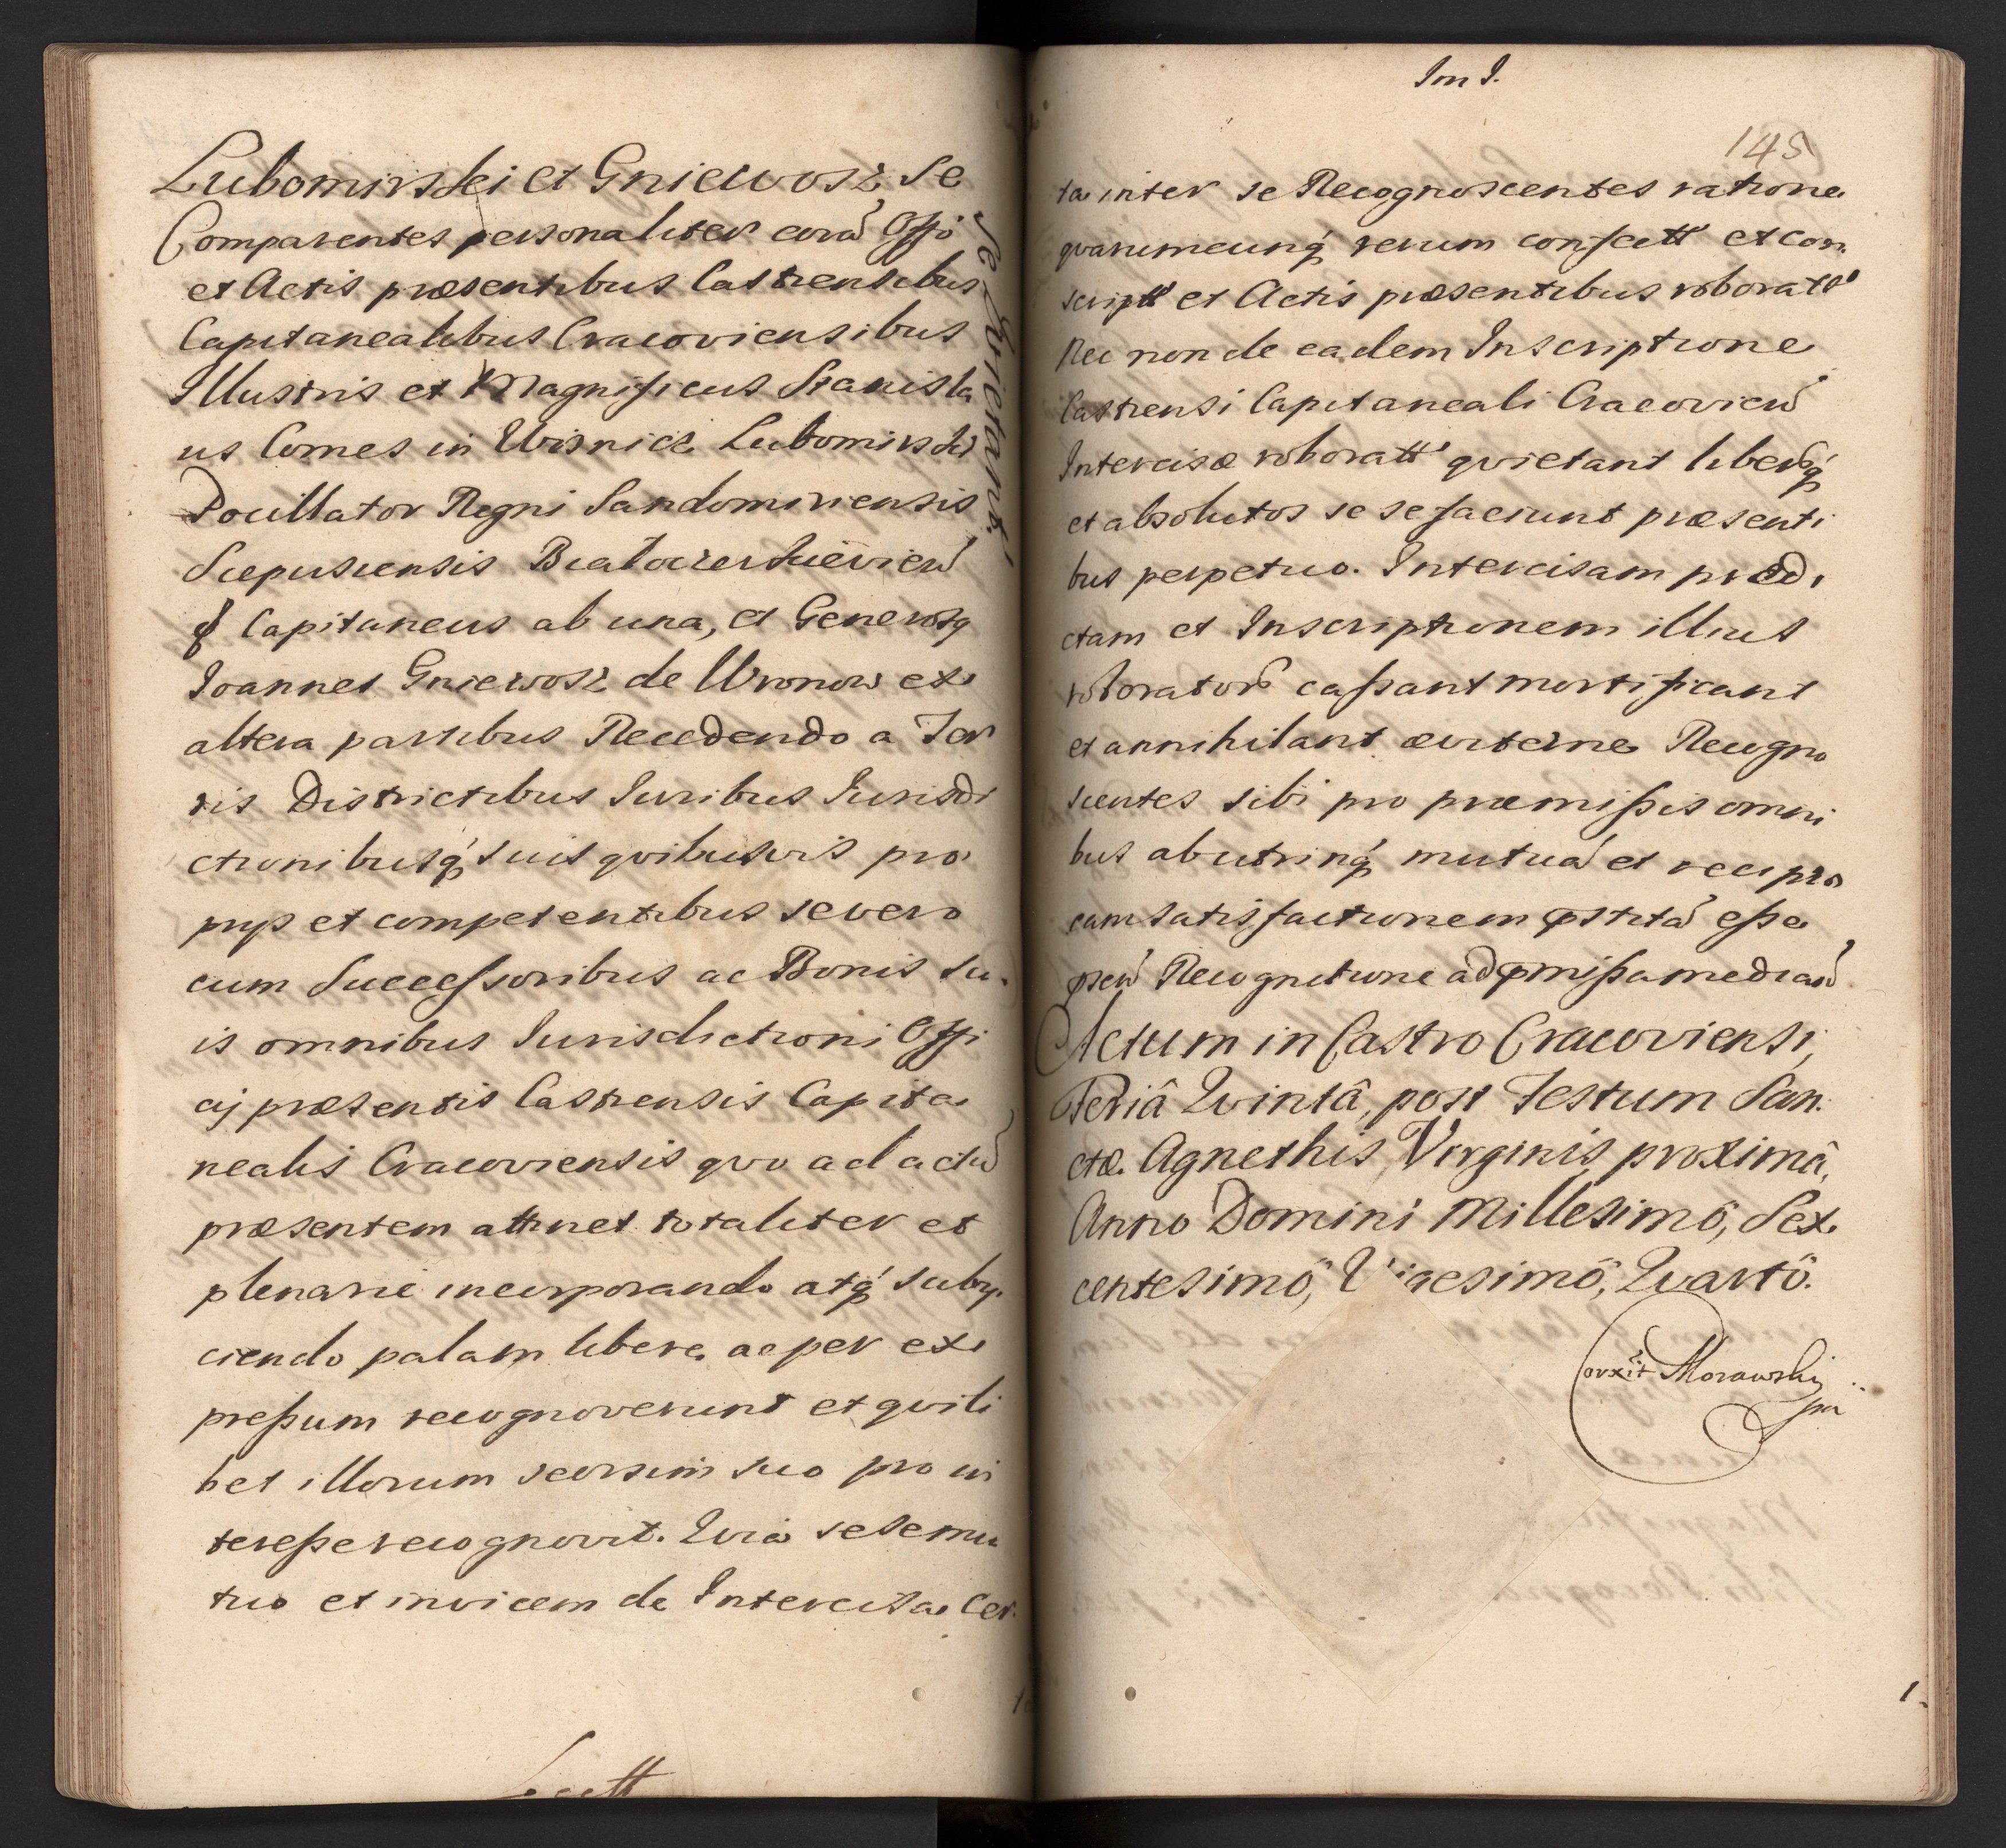 Lubomirski et Gniewosz se
se qvietant.
Comparentes personaliter corā Offō
et Actis præsentibus Castrensibus
Capitanealibus Cracoviensibus
Illustris et Magnificus Stanisla
us Comes in Wisnice Lubomirski
Pocillator Regni Sandomiriensis
Scepusiensis
Capitaneus ab una, et Generosq
Ioannes Gniewosz de Wronow ex
altera partibus Recedendo a Ter
ris Districtibus Iuribus Iurisdi
ctionibusq́ suis qvibusvis pro
prijs et competentibus se vero
cum Successoribus ac Bonis su
is omnibus Iurisdictioni Offi
cij præsentis Castrensis Capita
nealis Cracoviensis qvo ad actū
præsentem attinet totaliter et
plenarie incorporando atq́ subij
ciendo palam libere ac per ex
pressum recognoverunt et qvili
bet illorum seorsim suo pro in
teresse recognovit. Qvia se se mu
tuo et invicem de Intercisa Cer
Lectt
Im I.
145
ta inter se Recognoscentes ratione
qvarumcunq́ rerum confectt et con
scriptt et Actis præsentibus roboratt
Nec non de eadem Inscriptione
Castrensi Capitaneali Cracovień
Intercisæ roboratt qvietant liberosq́
et absolutos se se faciunt præsenti
bus perpetuo. Intercisam prædi
ctam et Inscriptionem illius
roborator̃ cassant mortificant
et annihilant æviterne Recogno
scentes sibi pro præmissis omni
bus ab utrinq́ mutuā et recipro
cam satisfactionem pstitā esse
pseń Recognitione ad pmissa mediań
Actum in Castro Cracoviensi,
Feriâ Qvintâ, post Festum San
ctæ Agnethis Virginis proximâ,
Anno Domini Millesimô, Sex
centesimô, Vigesimô, Qvartô.
Morawski
mp
1